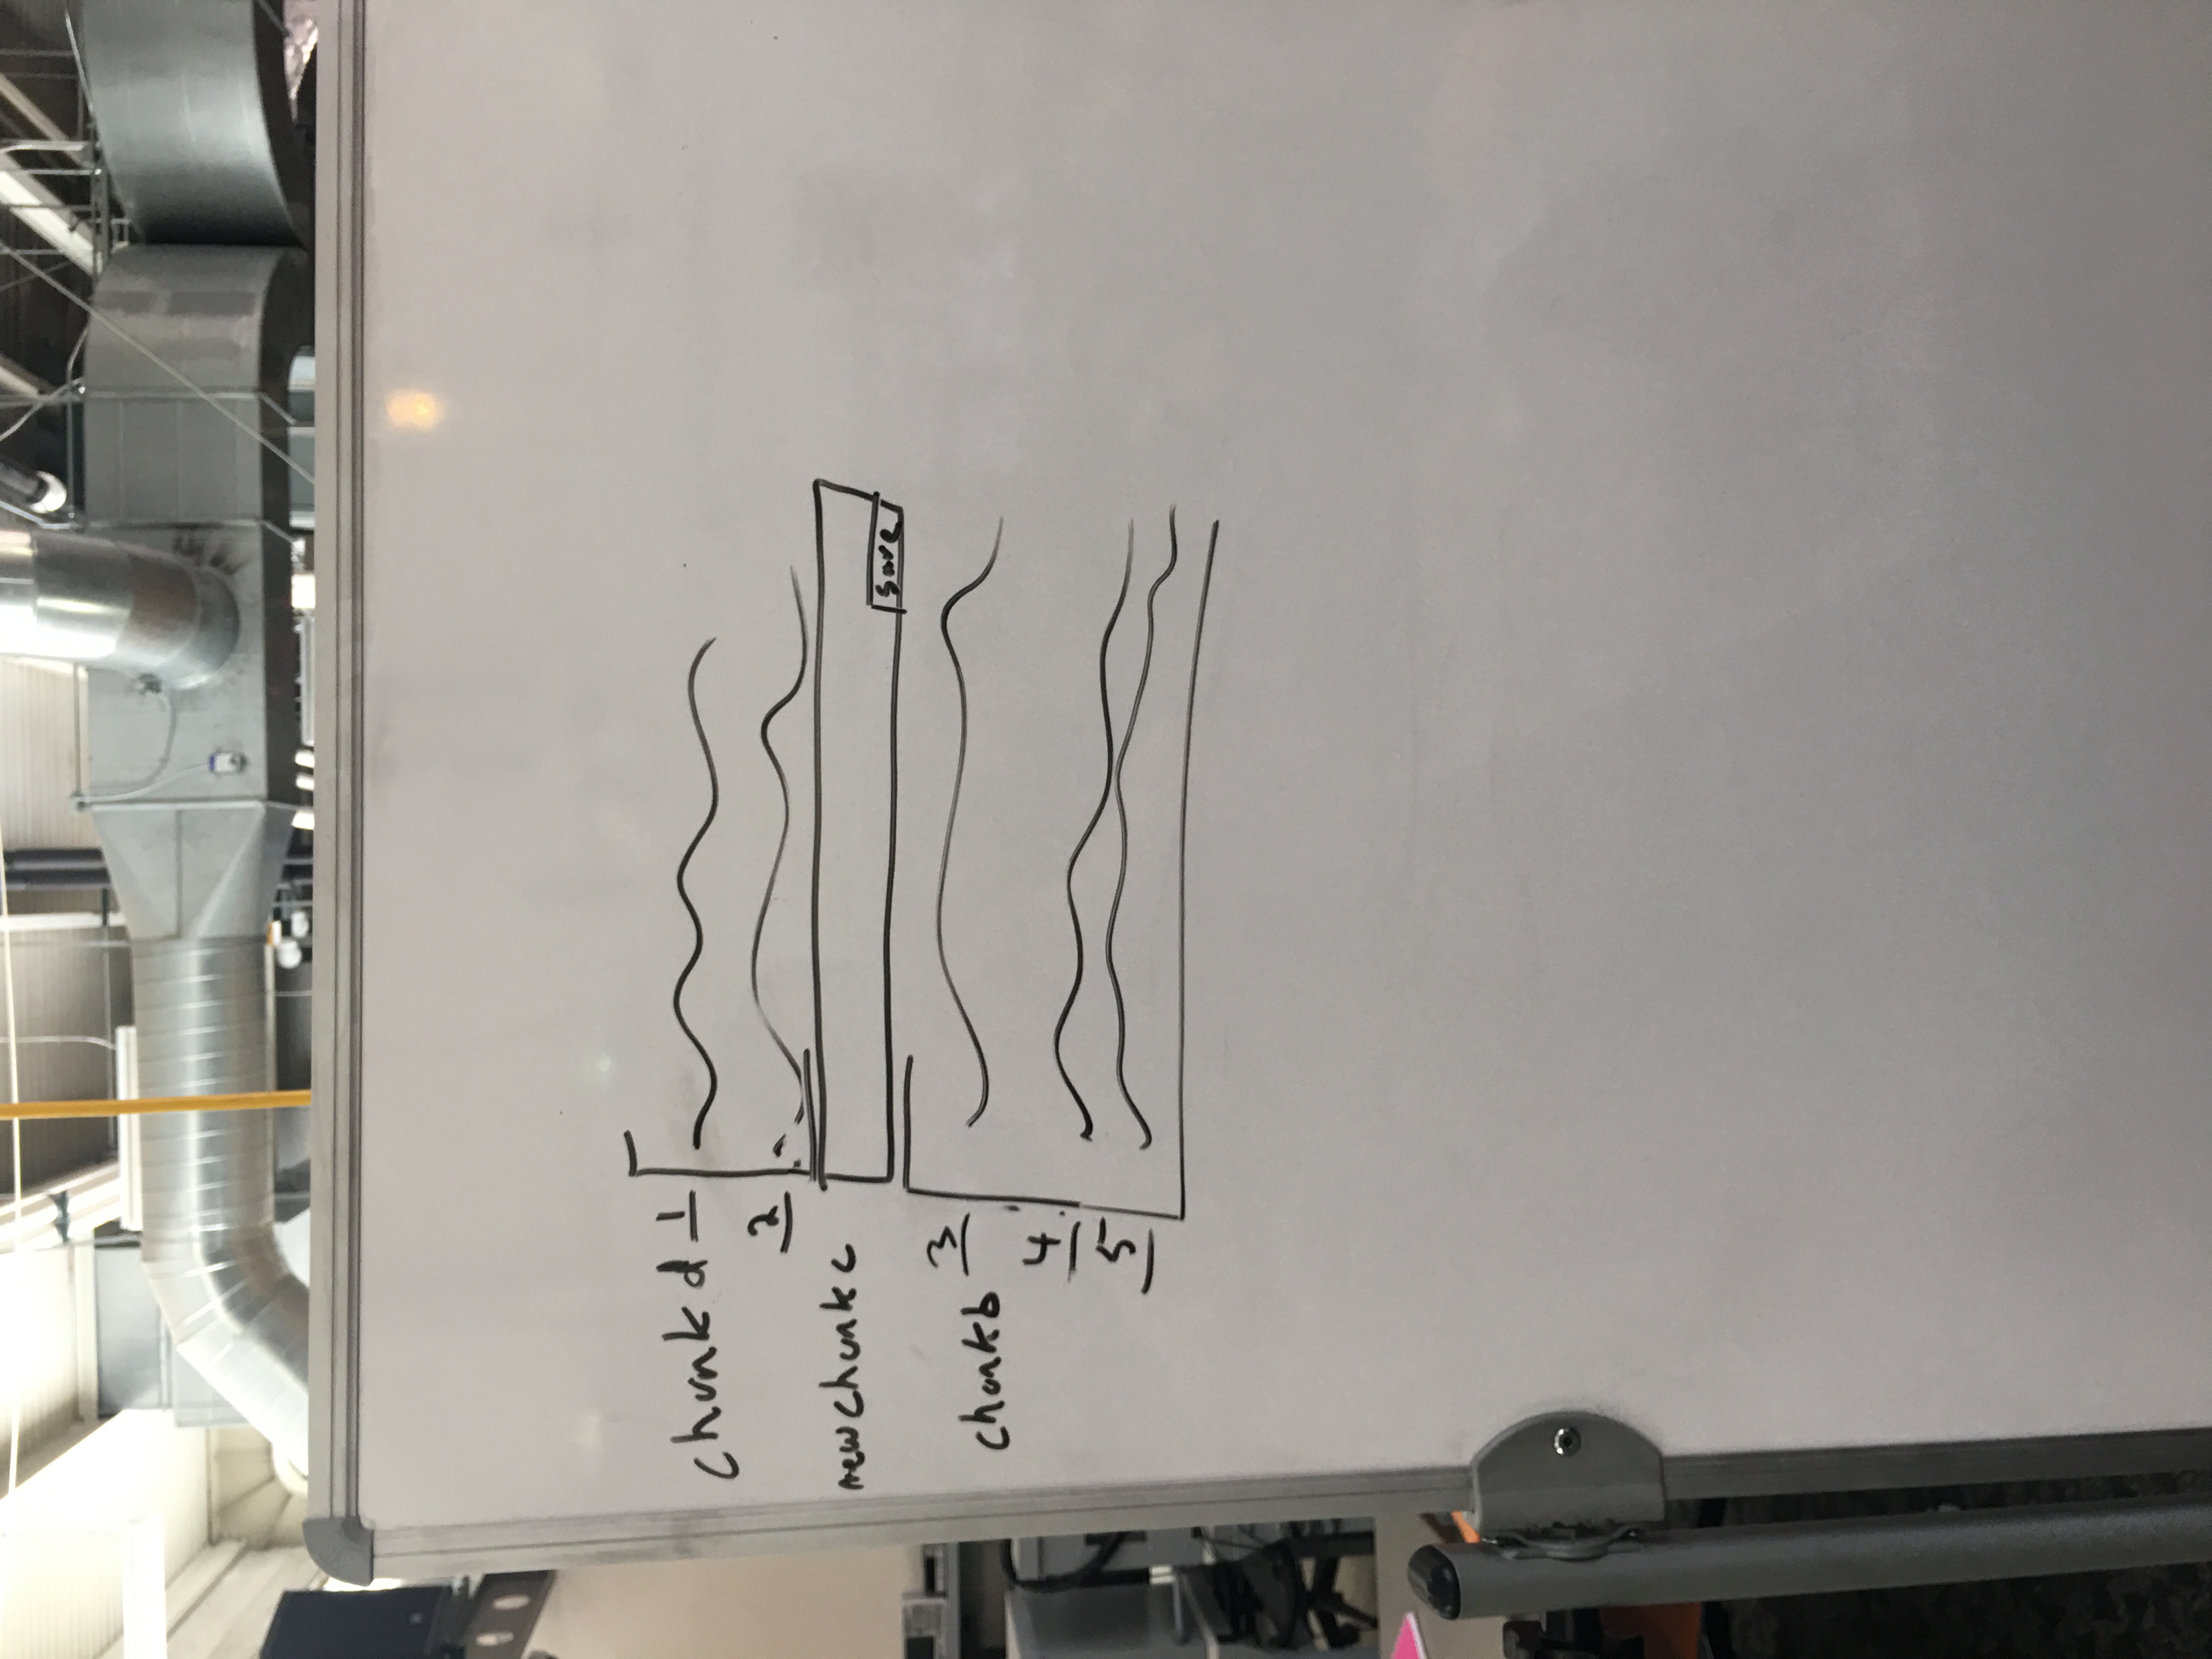 chunk d 1
2
new chunk c
save
3
chunk b
4
5